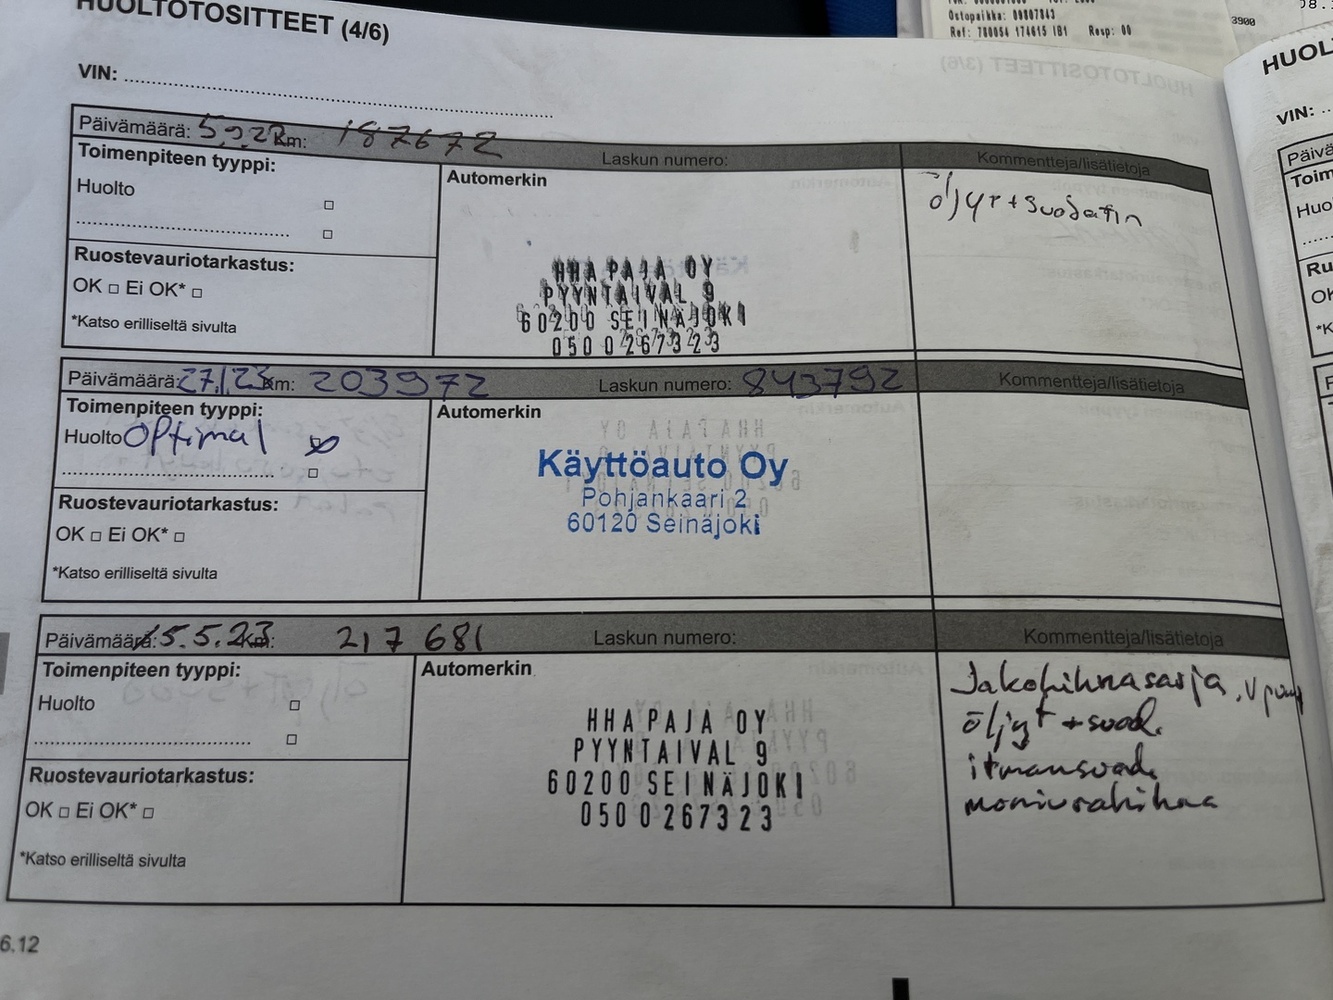 Ostopaikka: 09807843
Ref: 780054 174615 IB1 Resp: 00
3900
HUOLTOTOSITTEET (4/6)
VIN:
Päivämäärä: 5.9.22 Km: 187672 Laskun numero: Kommentteja/lisätietoja
Toimenpiteen tyyppi:
Huolto
Ruostevauriotarkastus:
OK □ Ei OK* □
*Katso erilliseltä sivulta
Automerkin
HHA PAJA OY
PYYNTAIVAL 9
60200 SEINÄJOKI
050 0267323
öljyt + suodatin
Päivämäärä: 27.1.23 Km: 203972 Laskun numero: 843792 Kommentteja/lisätietoja
Toimenpiteen tyyppi:
Huolto Optimal
Ruostevauriotarkastus:
OK □ Ei OK* □
*Katso erilliseltä sivulta
Automerkin
Käyttöauto Oy
Pohjankaari 2
60120 Seinäjoki
Päivämäärä: 15.5.23 Km: 217 681 Laskun numero: Kommentteja/lisätietoja
Toimenpiteen tyyppi:
Huolto
Ruostevauriotarkastus:
OK □ Ei OK* □
*Katso erilliseltä sivulta
Automerkin
HHA PAJA OY
PYYNTAIVAL 9
60200 SEINÄJOKI
050 0267323
Jakohihnasarja, v pump
öljyt + suod.
ilmansuod.
moniurahihna
6.12
HUOL
VIN:
Päivä
Toim
Huo
Ru